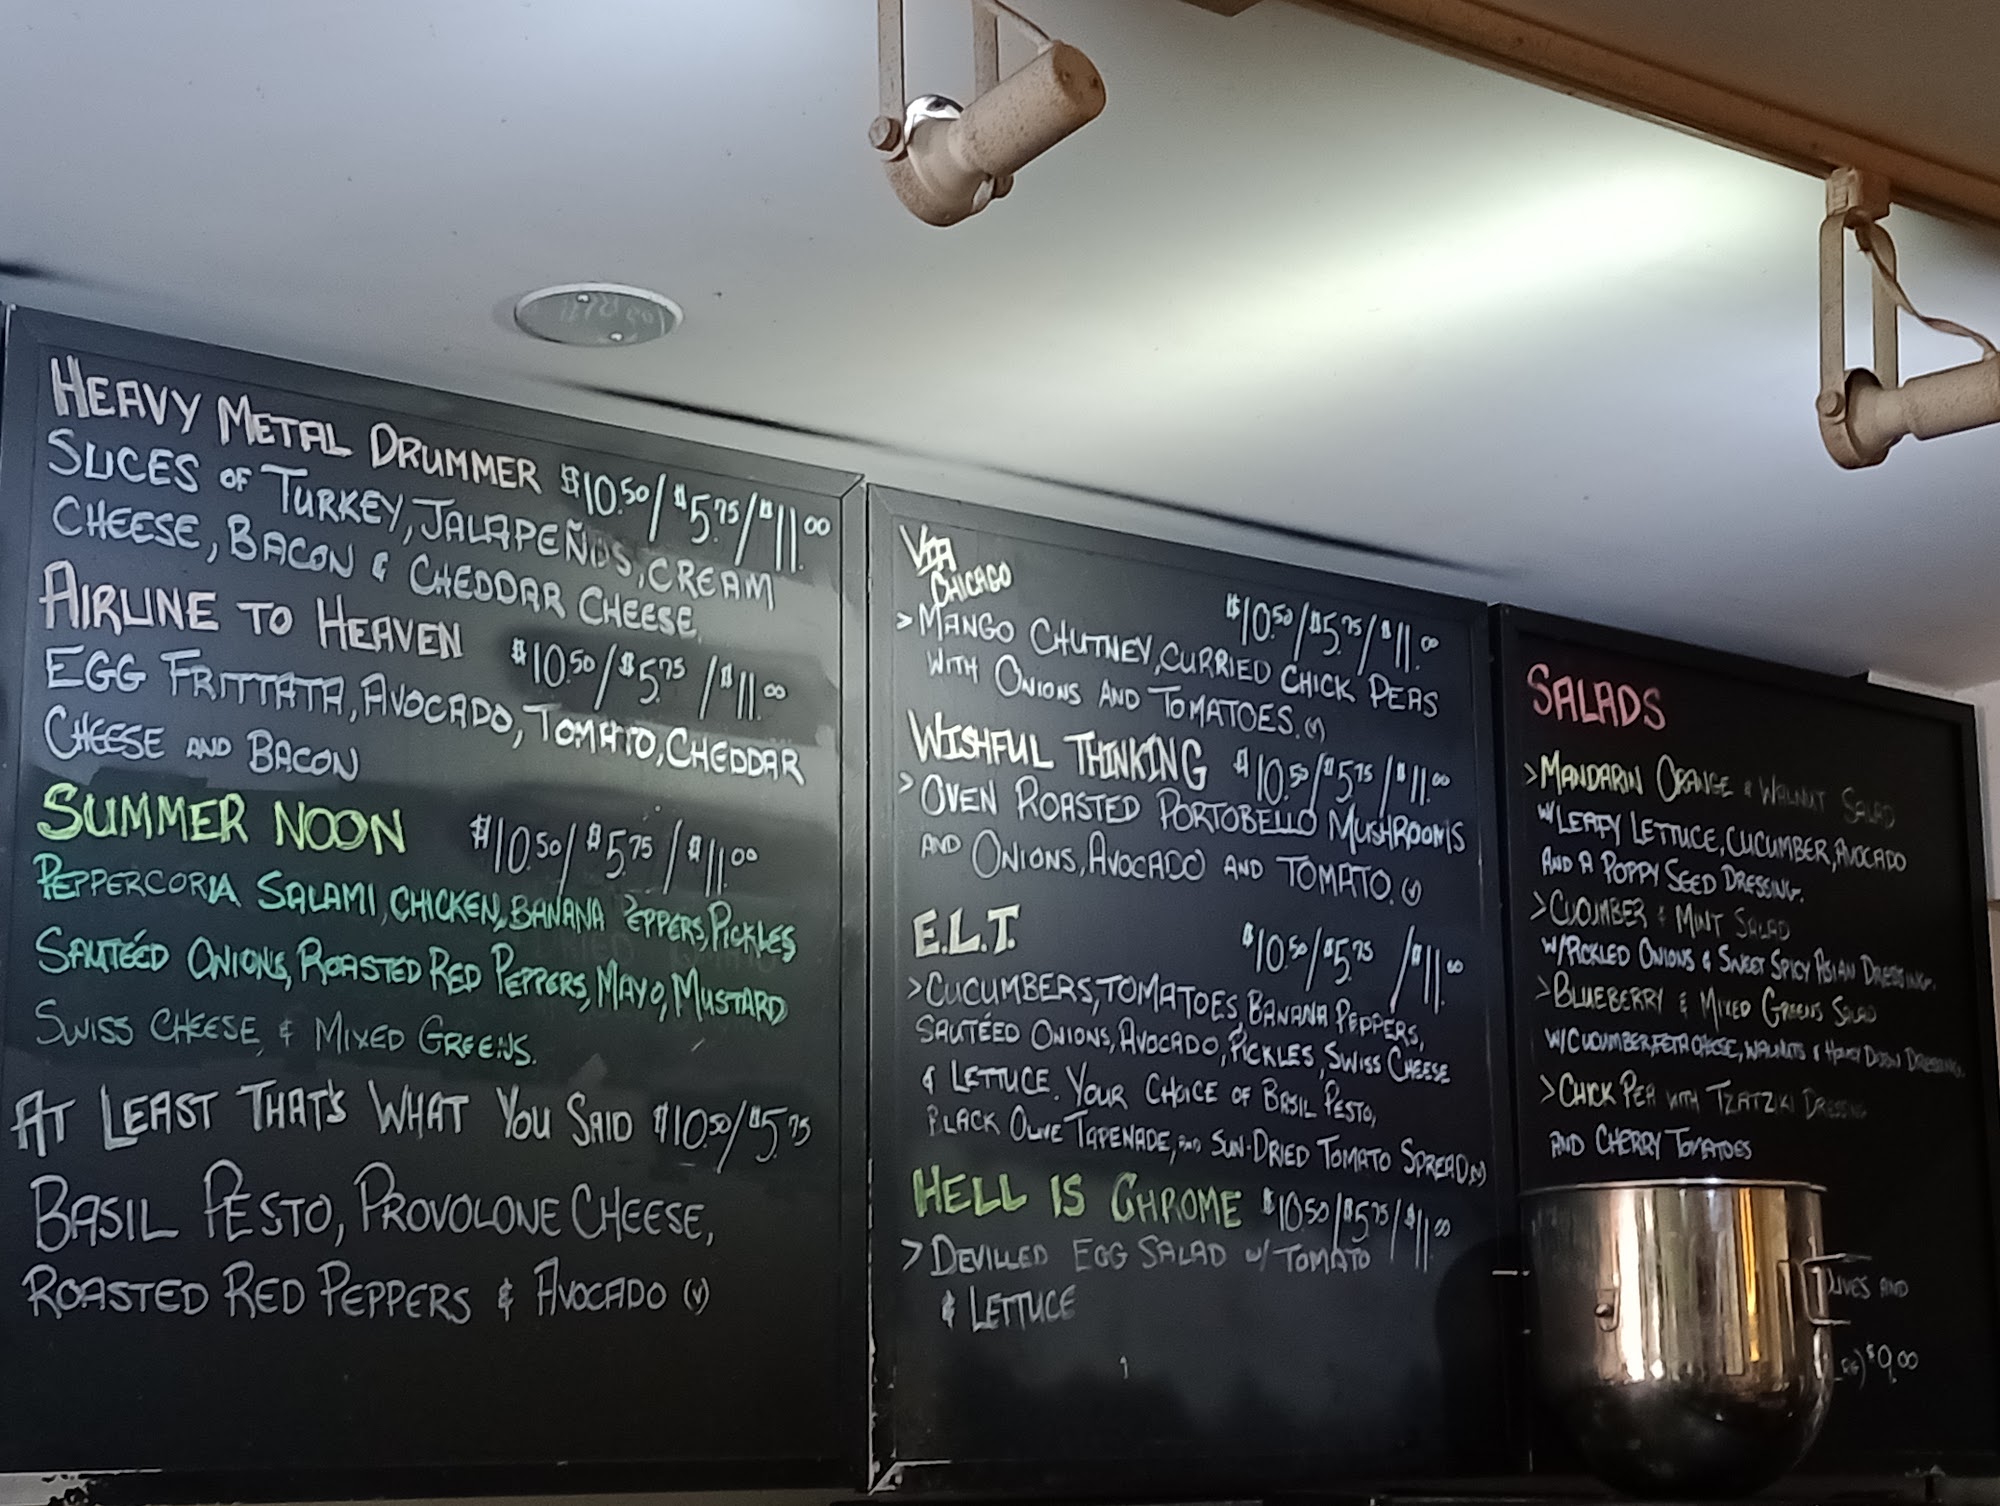 HEAVY METAL DRUMMER $10.50/$5.75/$11.00
SLICES OF TURKEY, JALAPEÑOS, CREAM
CHEESE, BACON & CHEDDAR CHEESE.
AIRLINE TO HEAVEN $10.50/$5.75/$11.00
EGG FRITTATA, AVOCADO, TOMATO, CHEDDAR
CHEESE AND BACON
SUMMER NOON $10.50/$5.75/$11.00
PEPPERCORIA SALAMI, CHICKEN, BANANA PEPPERS, PICKLES
SAUTÉED ONIONS, ROASTED RED PEPPERS, MAYO, MUSTARD
SWISS CHEESE, & MIXED GREENS.
AT LEAST THAT'S WHAT YOU SAID $10.50/$5.75
BASIL PESTO, PROVOLONE CHEESE,
ROASTED RED PEPPERS & AVOCADO (V)
VIA
CHICAGO $10.50/$5.75/$11.00
>MANGO CHUTNEY, CURRIED CHICK PEAS
WITH ONIONS AND TOMATOES. (V)
WISHFUL THINKING $10.50/$5.75/$11.00
>OVEN ROASTED PORTOBELLO MUSHROOMS
AND ONIONS, AVOCADO AND TOMATO. (V)
E.L.T. $10.50/$5.75/$11.00
>CUCUMBERS, TOMATOES, BANANA PEPPERS,
SAUTÉED ONIONS, AVOCADO, PICKLES, SWISS CHEESE
& LETTUCE. YOUR CHOICE OF BASIL PESTO,
BLACK OLIVE TAPENADE, AND SUN-DRIED TOMATO SPREAD. (V)
HELL IS CHROME $10.50/$5.75/$11.00
>DEVILLED EGG SALAD W/ TOMATO
& LETTUCE
SALADS
>MANDARIN ORANGE & WALNUT SALAD
W/LEAFY LETTUCE, CUCUMBER, AVOCADO
AND A POPPY SEED DRESSING.
>CUCUMBER & MINT SALAD
W/PICKLED ONIONS & SWEET SPICY ASIAN DRESSING.
>BLUEBERRY & MIXED GREENS SALAD
W/CUCUMBER, FETA CHEESE, WALNUTS & HONEY DIJON DRESSING.
>CHICK PEA WITH TZATZIKI DRESSING
AND CHERRY TOMATOES
AND
$9.00